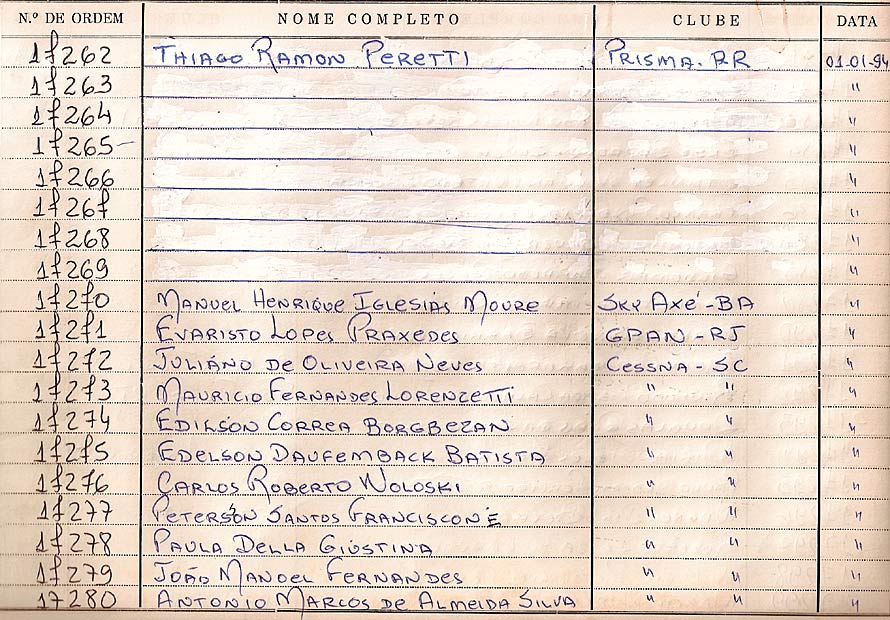 N.º DE ORDEM NOME COMPLETO CLUBE DATA
17262 THIAGO RAMON PERETTI PRISMA. RR 01-01-94
17263 "
17264 "
17265 "
17266 "
17267 "
17268 "
17269 "
17270 MANUEL HENRIQUE IGLESIAS MOURE SKY AXÉ - BA "
17271 EVARISTO LOPES PRAXEDES GPAN - RJ "
17272 JULIÁNO DE OLIVEIRA NEVES CESSNA - SC "
17273 MAURICIO FERNANDES LORENZETTI " " "
17274 EDILSON CORREA BORGBEZAN " " "
17275 EDELSON DAUFEMBACK BATISTA " " "
17276 CARLOS ROBERTO WOLOSKI " " "
17277 PETERSON SANTOS FRANCISCONE " " "
17278 PAULA DELLA GIUSTINA " " "
17279 JOÃO MANOEL FERNANDES " " "
17280 ANTONIO MARCOS DE ALMEIDA SILVA " " "